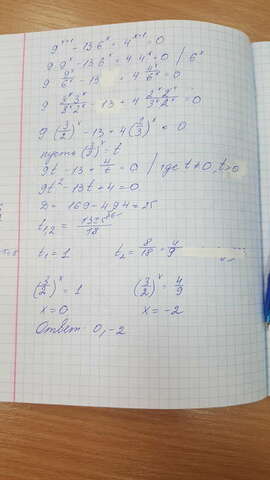 9^(x+1) - 13·6^x + 4^(x+1) = 0
9·9^x - 13·6^x + 4·4^x = 0 / 6^x
9 9^x/6^x - 13 + 4 4^x/6^x = 0
9 3^x3^x/3^x2^x - 13 + 4 2^x2^x/3^x2^x = 0
9 (3/2)^x - 13 + 4 (2/3)^x = 0
пусть (3/2)^x = t
9t - 13 + 4/t = 0 / где t≠0, t>0
9t² - 13t + 4 = 0
D = 169 - 4·9·4 = 25
t1,2 = 13±5/18
t1 = 1 t2 = 8/18 = 4/9
(3/2)^x = 1 (3/2)^x = 4/9
x = 0 x = -2
Ответ: 0, -2